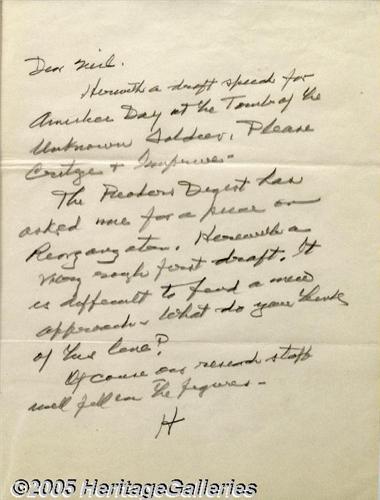 Dear Neil.
Herewith a draft speech for
Armistice Day at the Tomb of the
Unknown Soldier. Please
Critize + Improve -
The Readers Digest has
asked me for a piece on
Reorganization. Herewith a
very rough first draft. It
is difficult to find a new
approach - What do you think
of this line?
Of course our research staff
will fill in the figures -
H
©2005 HeritageGalleries